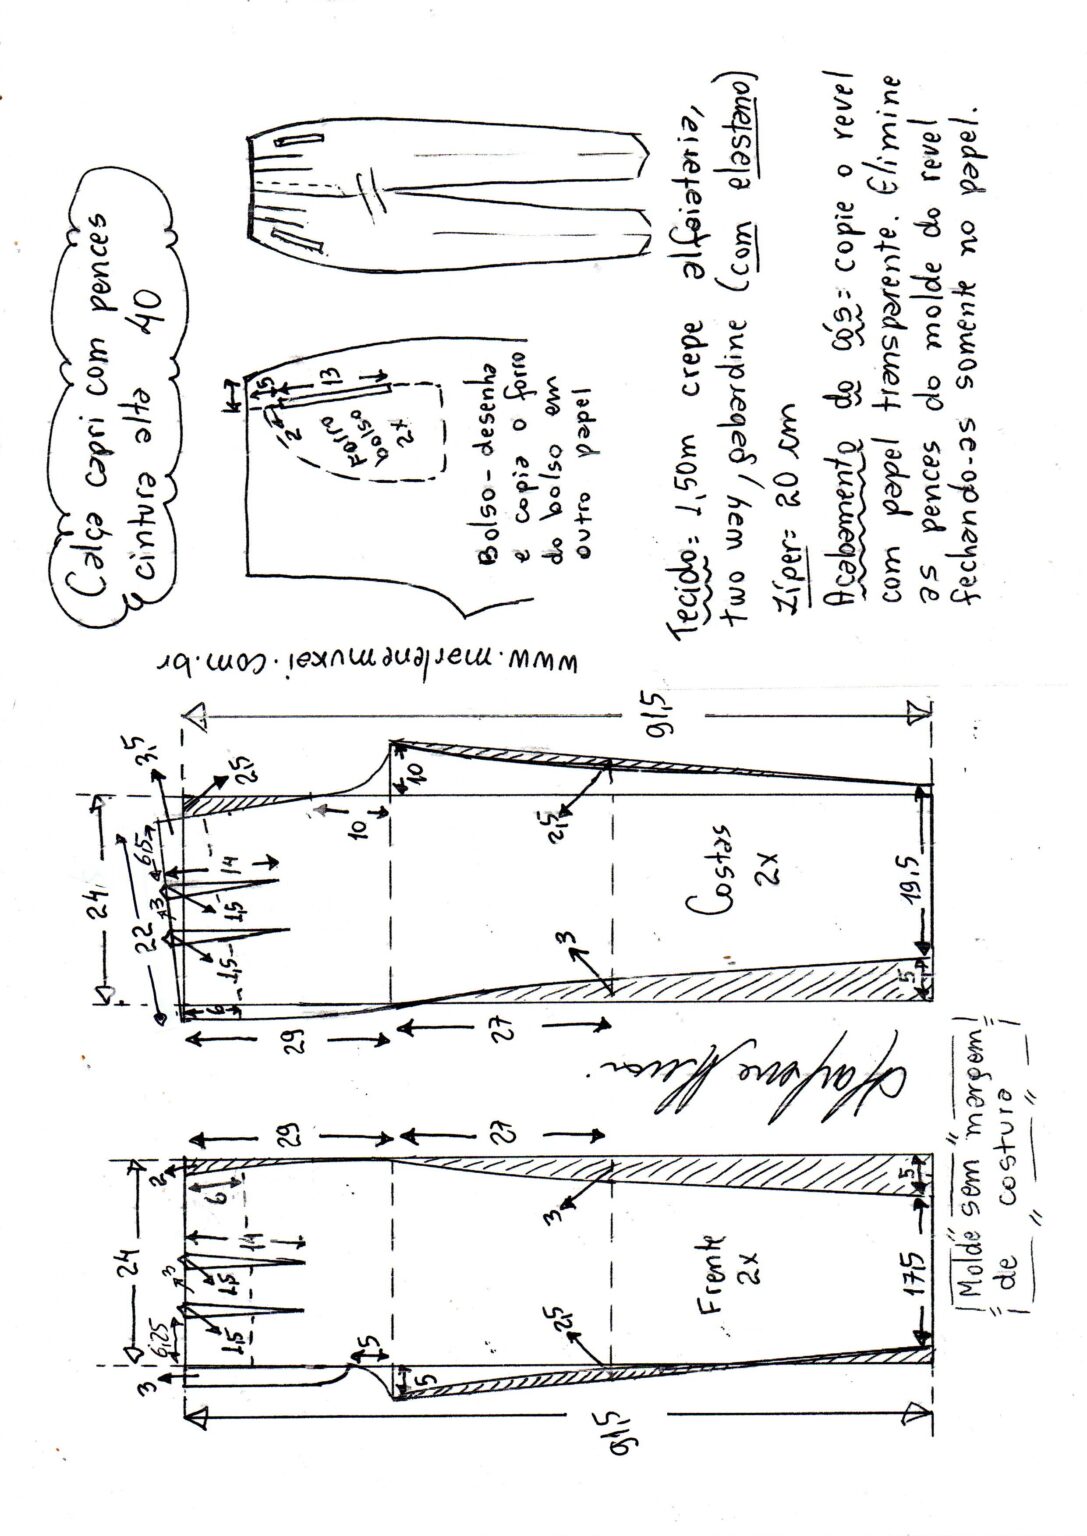 Calça capri com pences
cintura alta 40
5
13
2
Forro
bolso
2x
Bolso - desenha
e copia o forro
do bolso em
outro papel
Tecido = 1,50m crepe alfaiataria,
two way, gabardine (com elastano)
Zíper = 20 cm
Acabamento do cós = copie o revel
com papel transparente. Elimine
as pences do molde do revel
fechando-as somente no papel.
www.marlenemukai.com.br
91,5
24
3
6,25
3
2
1,5
1,5
14
6
29
27
5
5
2,5
3
Frente
2x
17,5
5
24
22
6,5
3
3,5
2,5
1,5
1,5
14
6
10
10
29
27
2,5
3
Costas
2x
19,5
5
91,5
Marlene Mukai
"Molde sem margem"
"de costura"